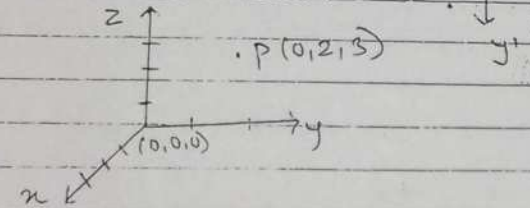 z
. P(0,2,3)
y'
(0,0,0)
y
x